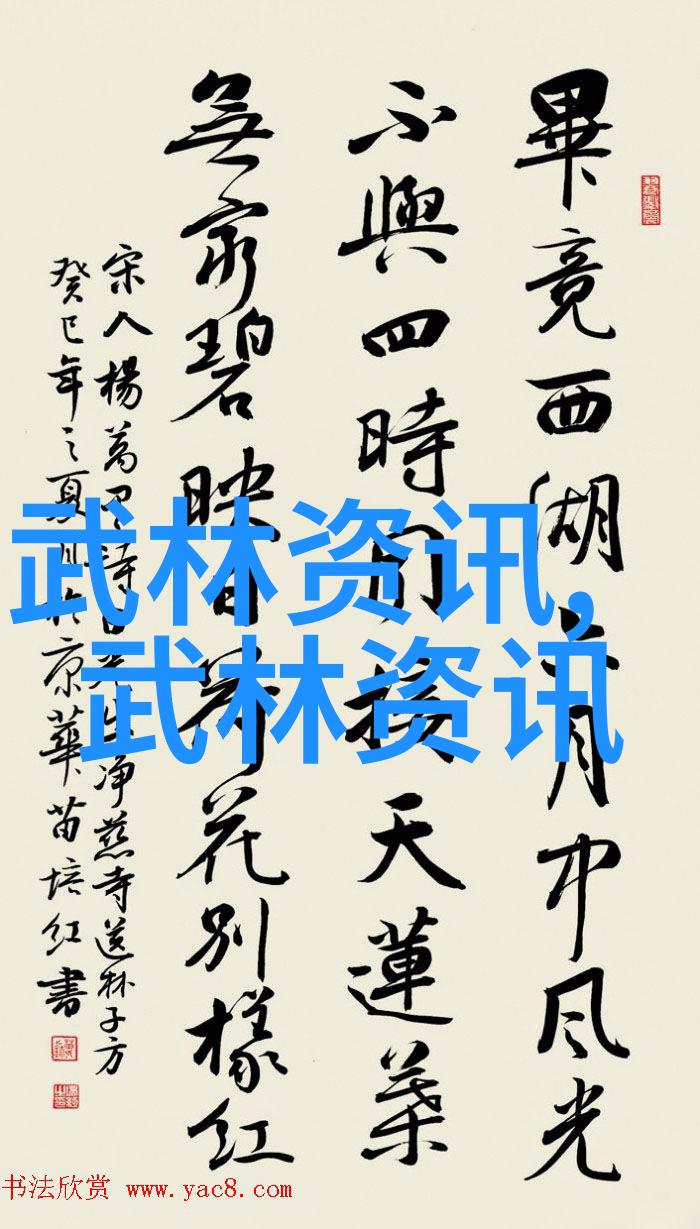 畢竟西湖六月中风光
不與四時同接天蓮葉
無窮碧映日荷花别樣红
宋人楊萬里詩曉出净慈寺送林子方
癸巳年之夏月於京華苗培红書
武林资讯,
武林资讯
书法欣赏 www.yac8.com